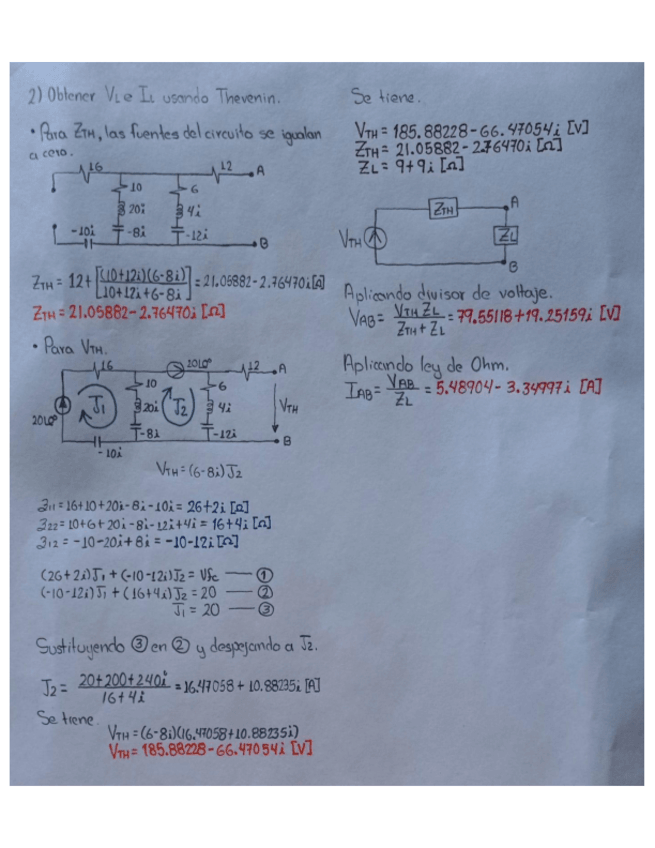 2) Obtener VL e IL usando Thevenin.
• Para ZTH, las fuentes del circuito se igualan
a cero.
16
12
A
10
6
20i
4i
-10i
-8i
-12i
B
ZTH = 12+[(10+12i)(6-8i)/10+12i+6-8i] = 21.05882-2.76470i[Ω]
ZTH = 21.05882-2.76470i [Ω]
• Para VTH.
16
20∟0°
12
A
10
6
20∟0°
J1
20i
J2
4i
VTH
-8i
-12i
B
-10i
VTH=(6-8i)J2
z11=16+10+20i-8i-10i= 26+2i [Ω]
z22=10+6+20i-8i-12i+4i=16+4i [Ω]
z12= -10-20i+8i= -10-12i [Ω]
(26+2i)J1+(-10-12i)J2= Vfc — ①
(-10-12i)J1+(16+4i)J2=20 — ②
J1=20 — ③
Sustituyendo ③ en ② y despejando a J2.
J2= 20+200+240i/16+4i = 16.47058+10.88235i [A]
Se tiene.
VTH=(6-8i)(16.47058+10.88235i)
VTH= 185.88228-66.47054i [V]
Se tiene.
VTH= 185.88228-66.47054i [V]
ZTH= 21.05882-2.76470i [Ω]
ZL= 9+9i [Ω]
ZTH
A
VTH
ZL
B
Aplicando divisor de voltaje.
VAB= VTH ZL/ZTH+ZL = 79.55118+19.25159i [V]
Aplicando ley de Ohm.
IAB= VAB/ZL = 5.48904-3.34997i [A]